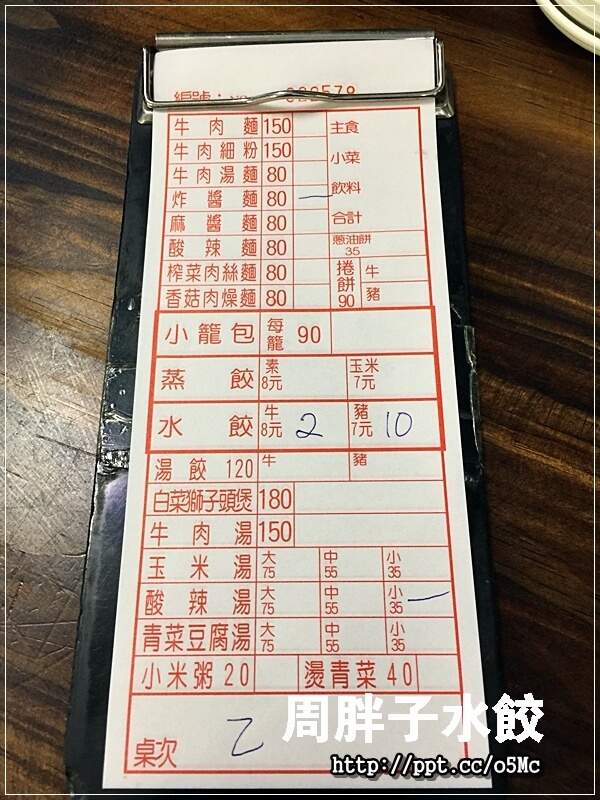 編號：
牛肉麵 150 主食
牛肉細粉 150 小菜
牛肉湯麵 80 飲料
炸醬麵 80 一
麻醬麵 80 合計
酸辣麵 80 蔥油餅 35
榨菜肉絲麵 80 捲餅 90 牛
香菇肉燥麵 80 豬
小籠包 每籠 90
蒸餃 素 8元 玉米 7元
水餃 牛 8元 2 豬 7元 10
湯餃 120 牛 豬
白菜獅子頭煲 180
牛肉湯 150
玉米湯 大 75 中 55 小 35
酸辣湯 大 75 中 55 小 35 一
青菜豆腐湯 大 75 中 55 小 35
小米粥 20 燙青菜 40
桌次 乙
周胖子水餃
http://ppt.cc/o5Mc